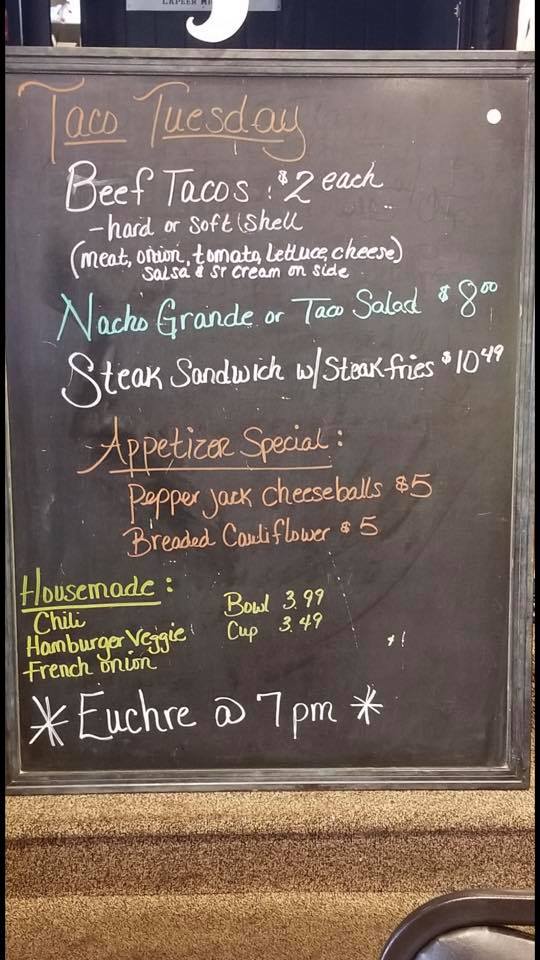 LAPEER
Taco Tuesday
Beef Tacos : $2 each
- hard or soft shell
(meat, onion, tomato, lettuce, cheese)
salsa & sr cream on side
Nacho Grande or Taco Salad $8.00
Steak Sandwich w/ Steak fries $10.49
Appetizer Special :
Pepper jack cheeseballs $5
Breaded Cauliflower $5
Housemade :
Chili
Hamburger Veggie
French onion
Bowl 3.99
Cup 3.49
* Euchre @ 7pm *